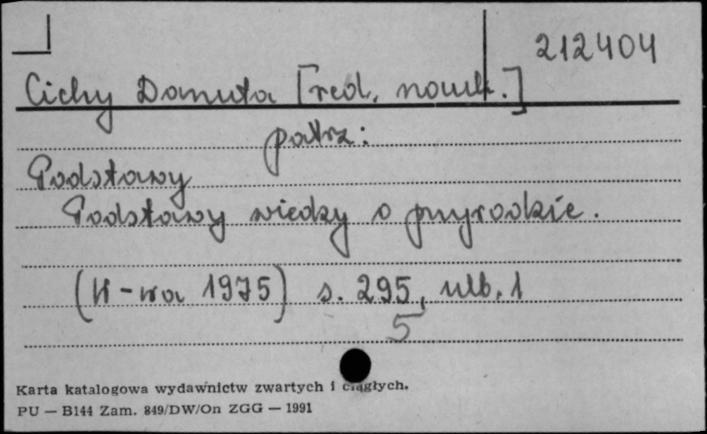 212404
Cichy Danuta [red. nauk.]
patrz:
Podstawy
Podstawy wiedzy o przyrodzie.
(W-wa 1975) s. 295, nlb. 1
5
Karta katalogowa wydawnictw zwartych i ciągłych.
PU — B144 Zam. 849/DW/On ZGG — 1991